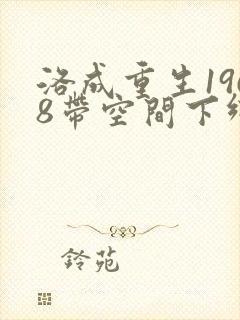 洛成重生196
8帶空間下
鈴苑